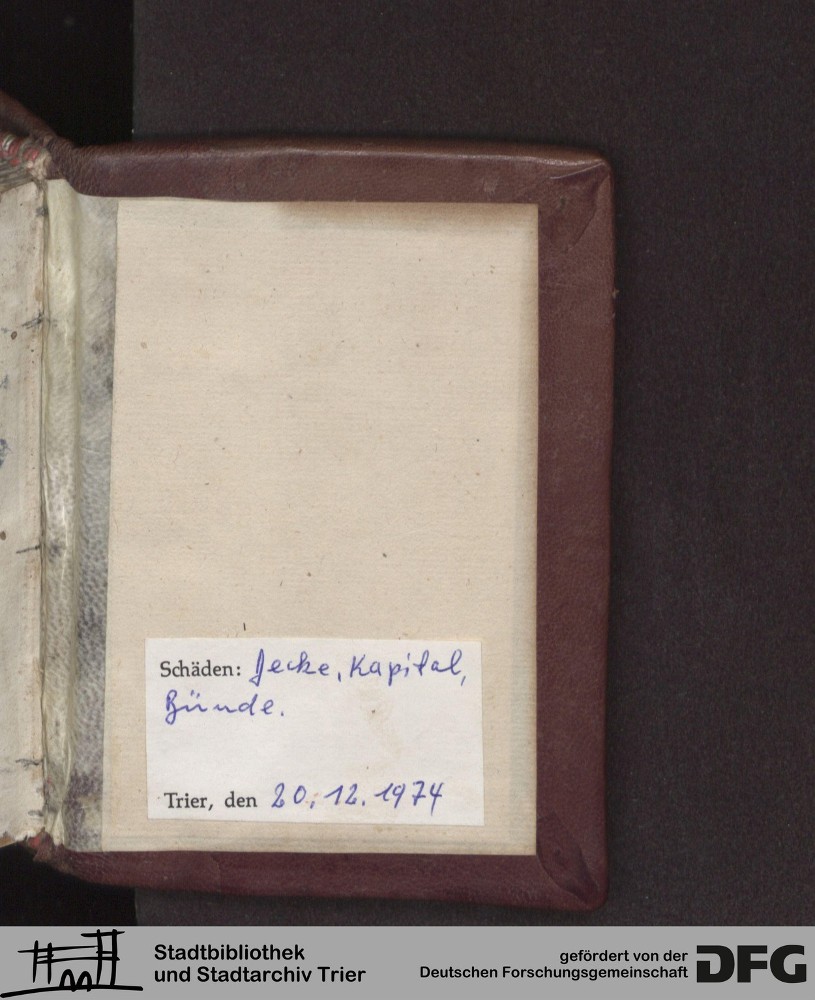 Schäden: Decke, Kapital,
Bünde.
Trier, den 20.12.1974
Stadtbibliothek
und Stadtarchiv Trier
gefördert von der
Deutschen Forschungsgemeinschaft
DFG